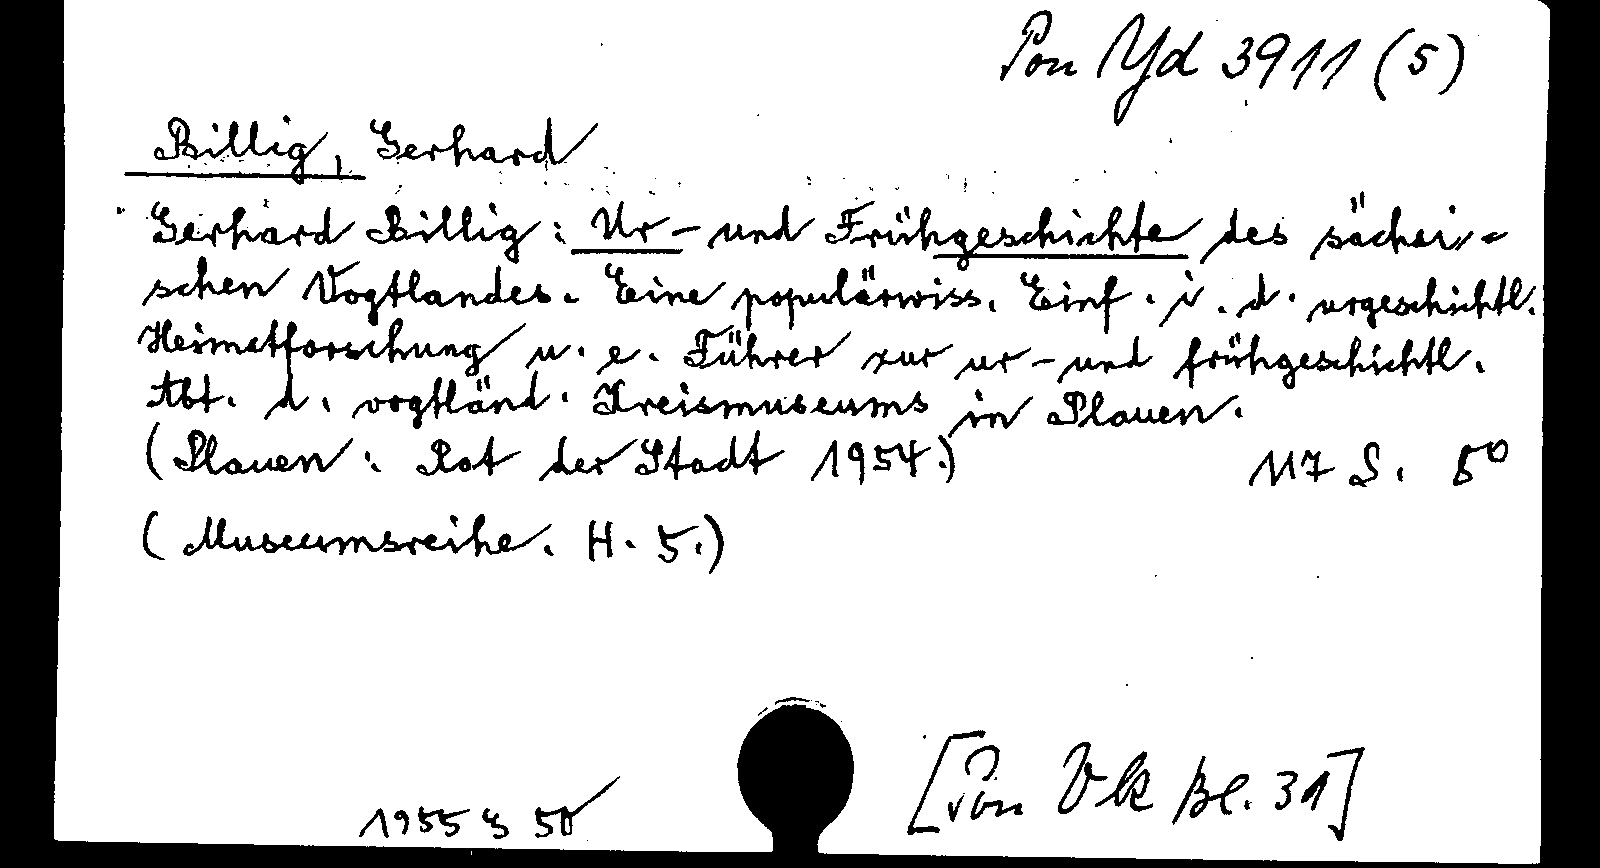 Pon Yd 3911 (5)
Billig, Gerhard
Gerhard Billig: Ur- und Frühgeschichte des sächsi-
schen Vogtlandes. Eine populärwiss. Einf. i. d. urgeschichtl.
Heimatforschung u. e. Führer zur ur- und frühgeschichtl.
Abt. d. vogtländ. Kreismuseums in Plauen.
(Plauen: Rat der Stadt 1954.) 117 S. 8°
(Museumsreihe. H. 5.)
[Pon Vk Bl. 31]
1955 50